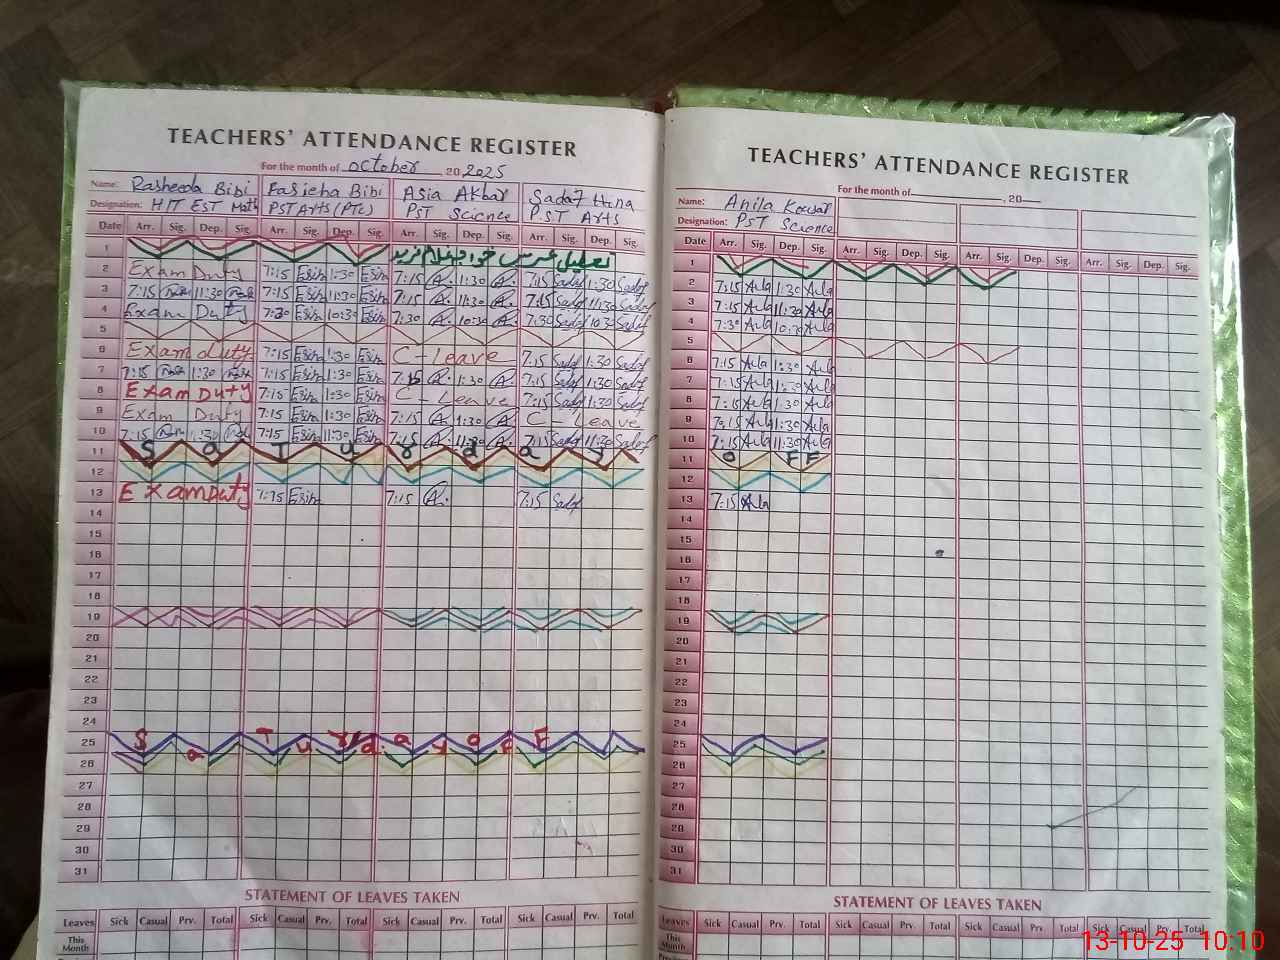 TEACHERS' ATTENDANCE REGISTER
For the month of October 20 2025
Name: Rasheeda Bibi Fasieha Bibi Asia Akbar Sadaf Hina
Designation: HIT EST Math PST Arts (PTC) PST Science PST Arts
Date Arr. Sig. Dep. Sig. Arr. Sig. Dep. Sig. Arr. Sig. Dep. Sig. Arr. Sig. Dep. Sig.
1 تعطیل عرس خواجہ غلام فرید
2 Exam Duty 7:15 1:30 7:15 11:30 7:15 1:30
3 7:15 11:30 7:15 11:30 7:15 11:30 7:15 11:30
4 Exam Duty 7:30 10:30 7:30 10:30 7:30 10:30
5
6 Exam duty 7:15 1:30 C-Leave 7:15 1:30
7 7:15 1:30 7:15 1:30 7:15 1:30 7:15 1:30
8 Exam Duty 7:15 1:30 C-Leave 7:15 1:30
9 Exam Duty 7:15 1:30 7:15 1:30 C-Leave
10 7:15 11:30 7:15 11:30 7:15 11:30 7:15 11:30
11 S a T u r d a y
12
13 Exam Duty 7:15 7:15 7:15
14
15
16
17
18
19
20
21
22
23
24
25 S a T u r d a y o F F
26
27
28
29
30
31
STATEMENT OF LEAVES TAKEN
Leaves Sick Casual Prv. Total Sick Casual Prv. Total Sick Casual Prv. Total Sick Casual Prv. Total
This Month
TEACHERS' ATTENDANCE REGISTER
For the month of , 20
Name: Anila Kousar
Designation: PST Science
Date Arr. Sig. Dep. Sig. Arr. Sig. Dep. Sig. Arr. Sig. Dep. Sig. Arr. Sig. Dep. Sig.
1
2 7:15 1:30
3 7:15 11:30
4 7:30 10:30
5
6 7:15 1:30
7 7:15 1:30
8 7:15 1:30
9 7:15 1:30
10 7:15 11:30
11 o F F
12
13 7:15
14
15
16
17
18
19
20
21
22
23
24
25
26
27
28
29
30
31
STATEMENT OF LEAVES TAKEN
Leaves Sick Casual Prv. Total Sick Casual Prv. Total Sick Casual Prv. Total Sick Casual Prv. Total
This Month
13-10-25 10:10